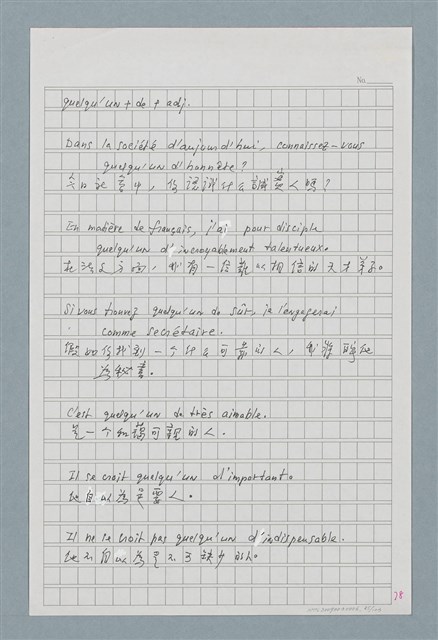 No.
quelqu'un + de + adj.
Dans la société d'aujourd'hui, connaissez-vous
quelqu'un d'honnête?
今日社會中，你認識什么誠實人嗎？
En matière de français, j'ai pour disciple
quelqu'un d'incroyablement talentueux.
在法文方面，我有一個難以相信的天才弟子。
Si vous trouvez quelqu'un de sûr, je l'engagerai
comme secrétaire.
假如你找到一个什么可靠的人，我將聘他
為秘書。
C'est quelqu'un de très aimable.
是一个和藹可親的人。
Il se croit quelqu'un d'important.
他自以為是要人。
Il ne se croit pas quelqu'un d'indispensable.
他不自以為是不可缺少的人。
78